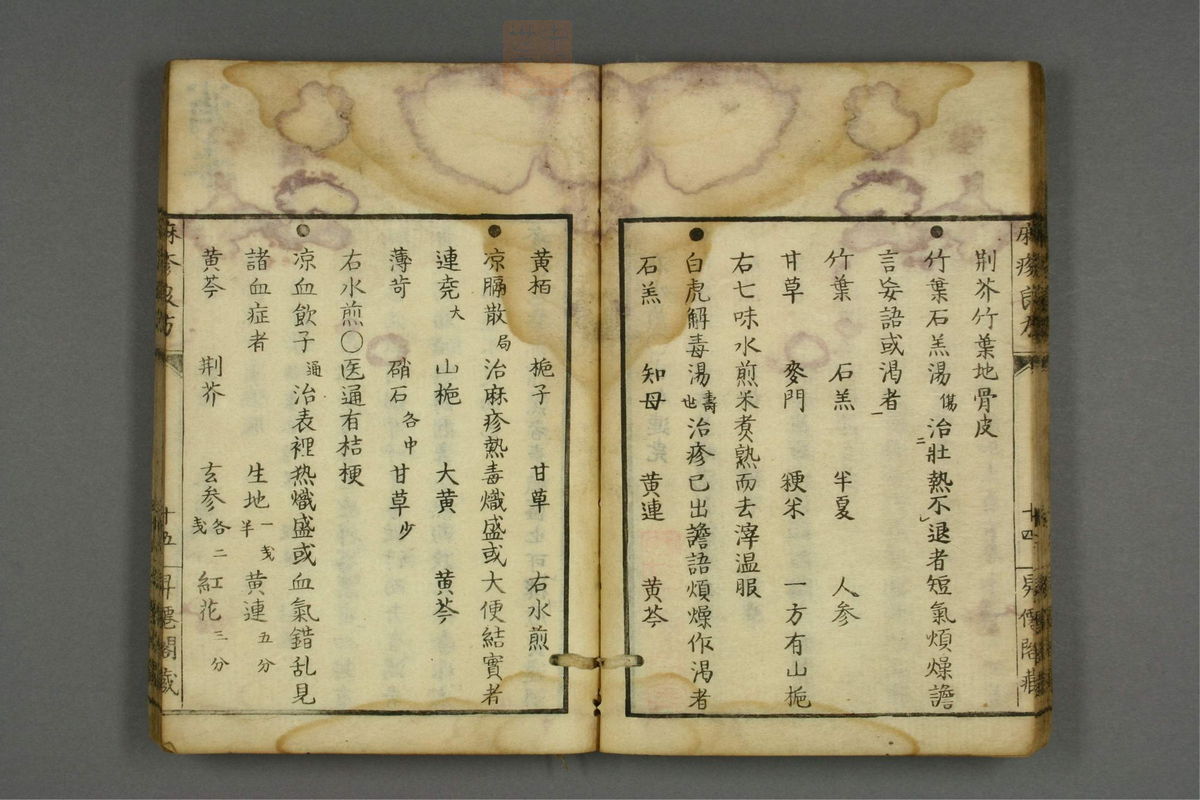 荆芥竹葉地骨皮
竹葉石羔湯傷治壯熱不退者短氣煩燥譫
言妄語或渇者
竹葉 石羔 半夏 人参
甘草 麥門 粳米 一方有山梔
右七味水煎米煑熟而去滓温服
白虎解毒湯壽世治疹已出譫語煩燥作渇者
石羔 知母 黄連 黄芩
黄栢 梔子 甘草 右水煎
凉膈散局治麻疹熱毒熾盛或大便結實者
連尭大 山梔 大黄 黄芩
薄荷 硝石各中 甘草少
右水煎〇医通有桔梗
凉血飲子通治表裡热熾盛或血氣錯乱見
諸血症者 生地一戔半 黄連五分
黄芩 荆芥 玄参各二戔 紅花三分
十四
十五